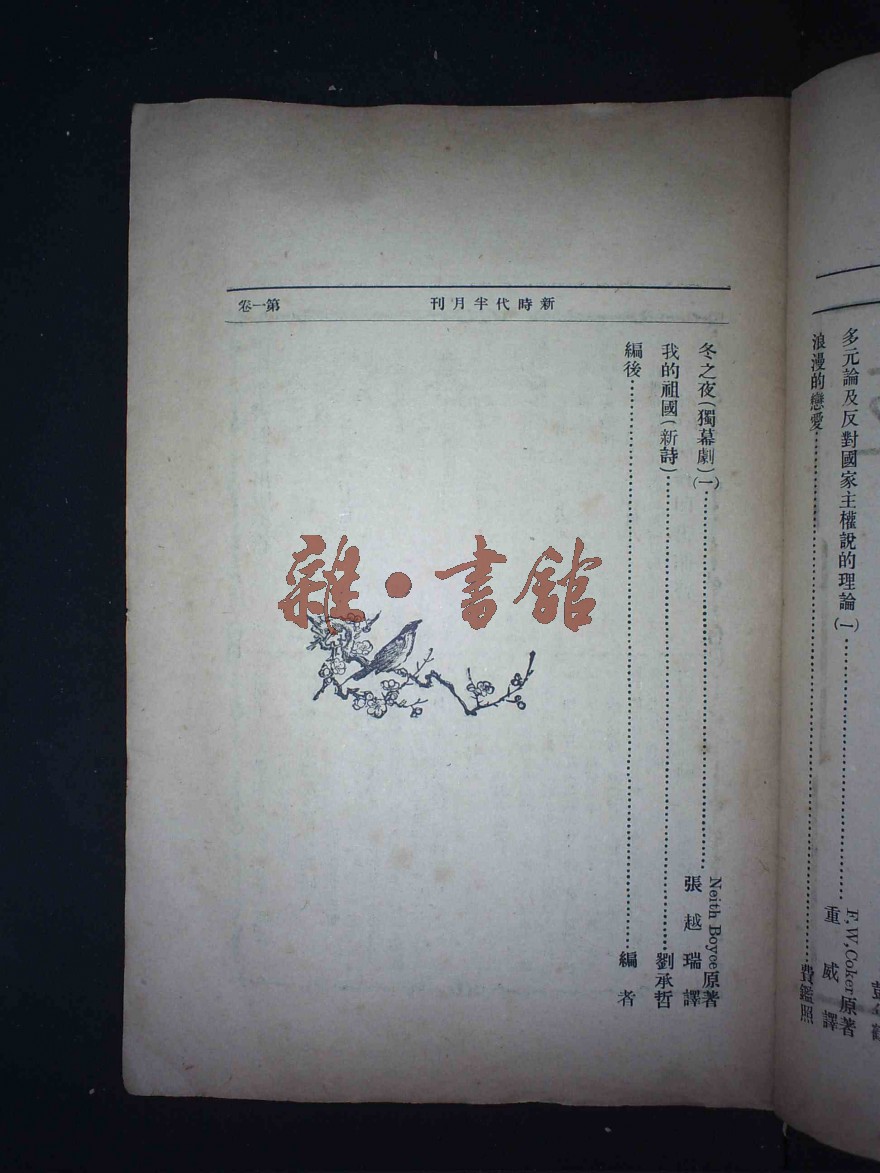 多元論及反對國家主權說的理論(一)………F.W,Coker原著 重威譯
浪漫的戀愛………費鑑照
新時代半月刊
第一卷
冬之夜(獨幕劇)(一)………Neith Boyce原著 張越瑞譯
我的祖國(新詩)………劉承哲
編後………編者
雜・書館